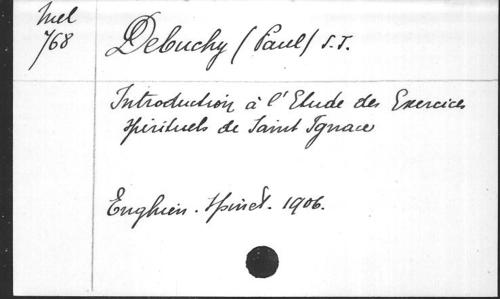 Mel
768
Debuchy (Paul) S.J.
Introduction à l'Etude des Exercices
spirituels de Saint Ignace
Enghien. Spinet. 1906.